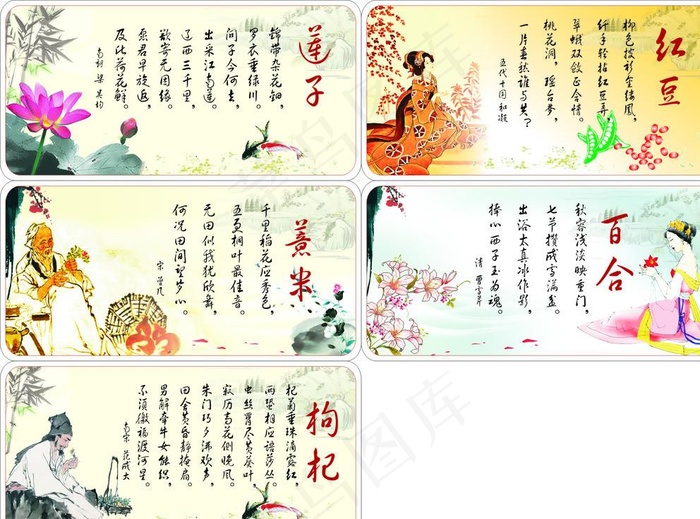 莲子
锦带杂花钿,
罗衣垂绿川。
问子今何去,
出采江南莲。
辽西三千里,
欲寄无因缘。
愿君早旋返,
及此荷花鲜。
南朝 梁 吴均
红豆
柳色披衫金缕凤,
纤手轻拈红豆弄,
翠蛾双敛正含情。
桃花洞,瑶台梦,
一片春愁谁与共?
五代十国 和凝
薏米
千里稻花应秀色,
五更桐叶最佳音。
无田似我犹欣舞,
何况田间望岁心。
宋 曾几
百合
秋容浅淡映重门,
七节攒成雪满盆。
出浴太真冰作影,
捧心西子玉为魂。
清 曹雪芹
枸杞
杞菊垂珠滴露红,
两蛩相应语莎丛。
虫丝罥尽黄葵叶,
寂历高花侧晚风。
朱门巧夕沸欢声,
田舍黄昏静掩扃。
男解牵牛女能织,
不须徼福渡河星。
南宋 范成大